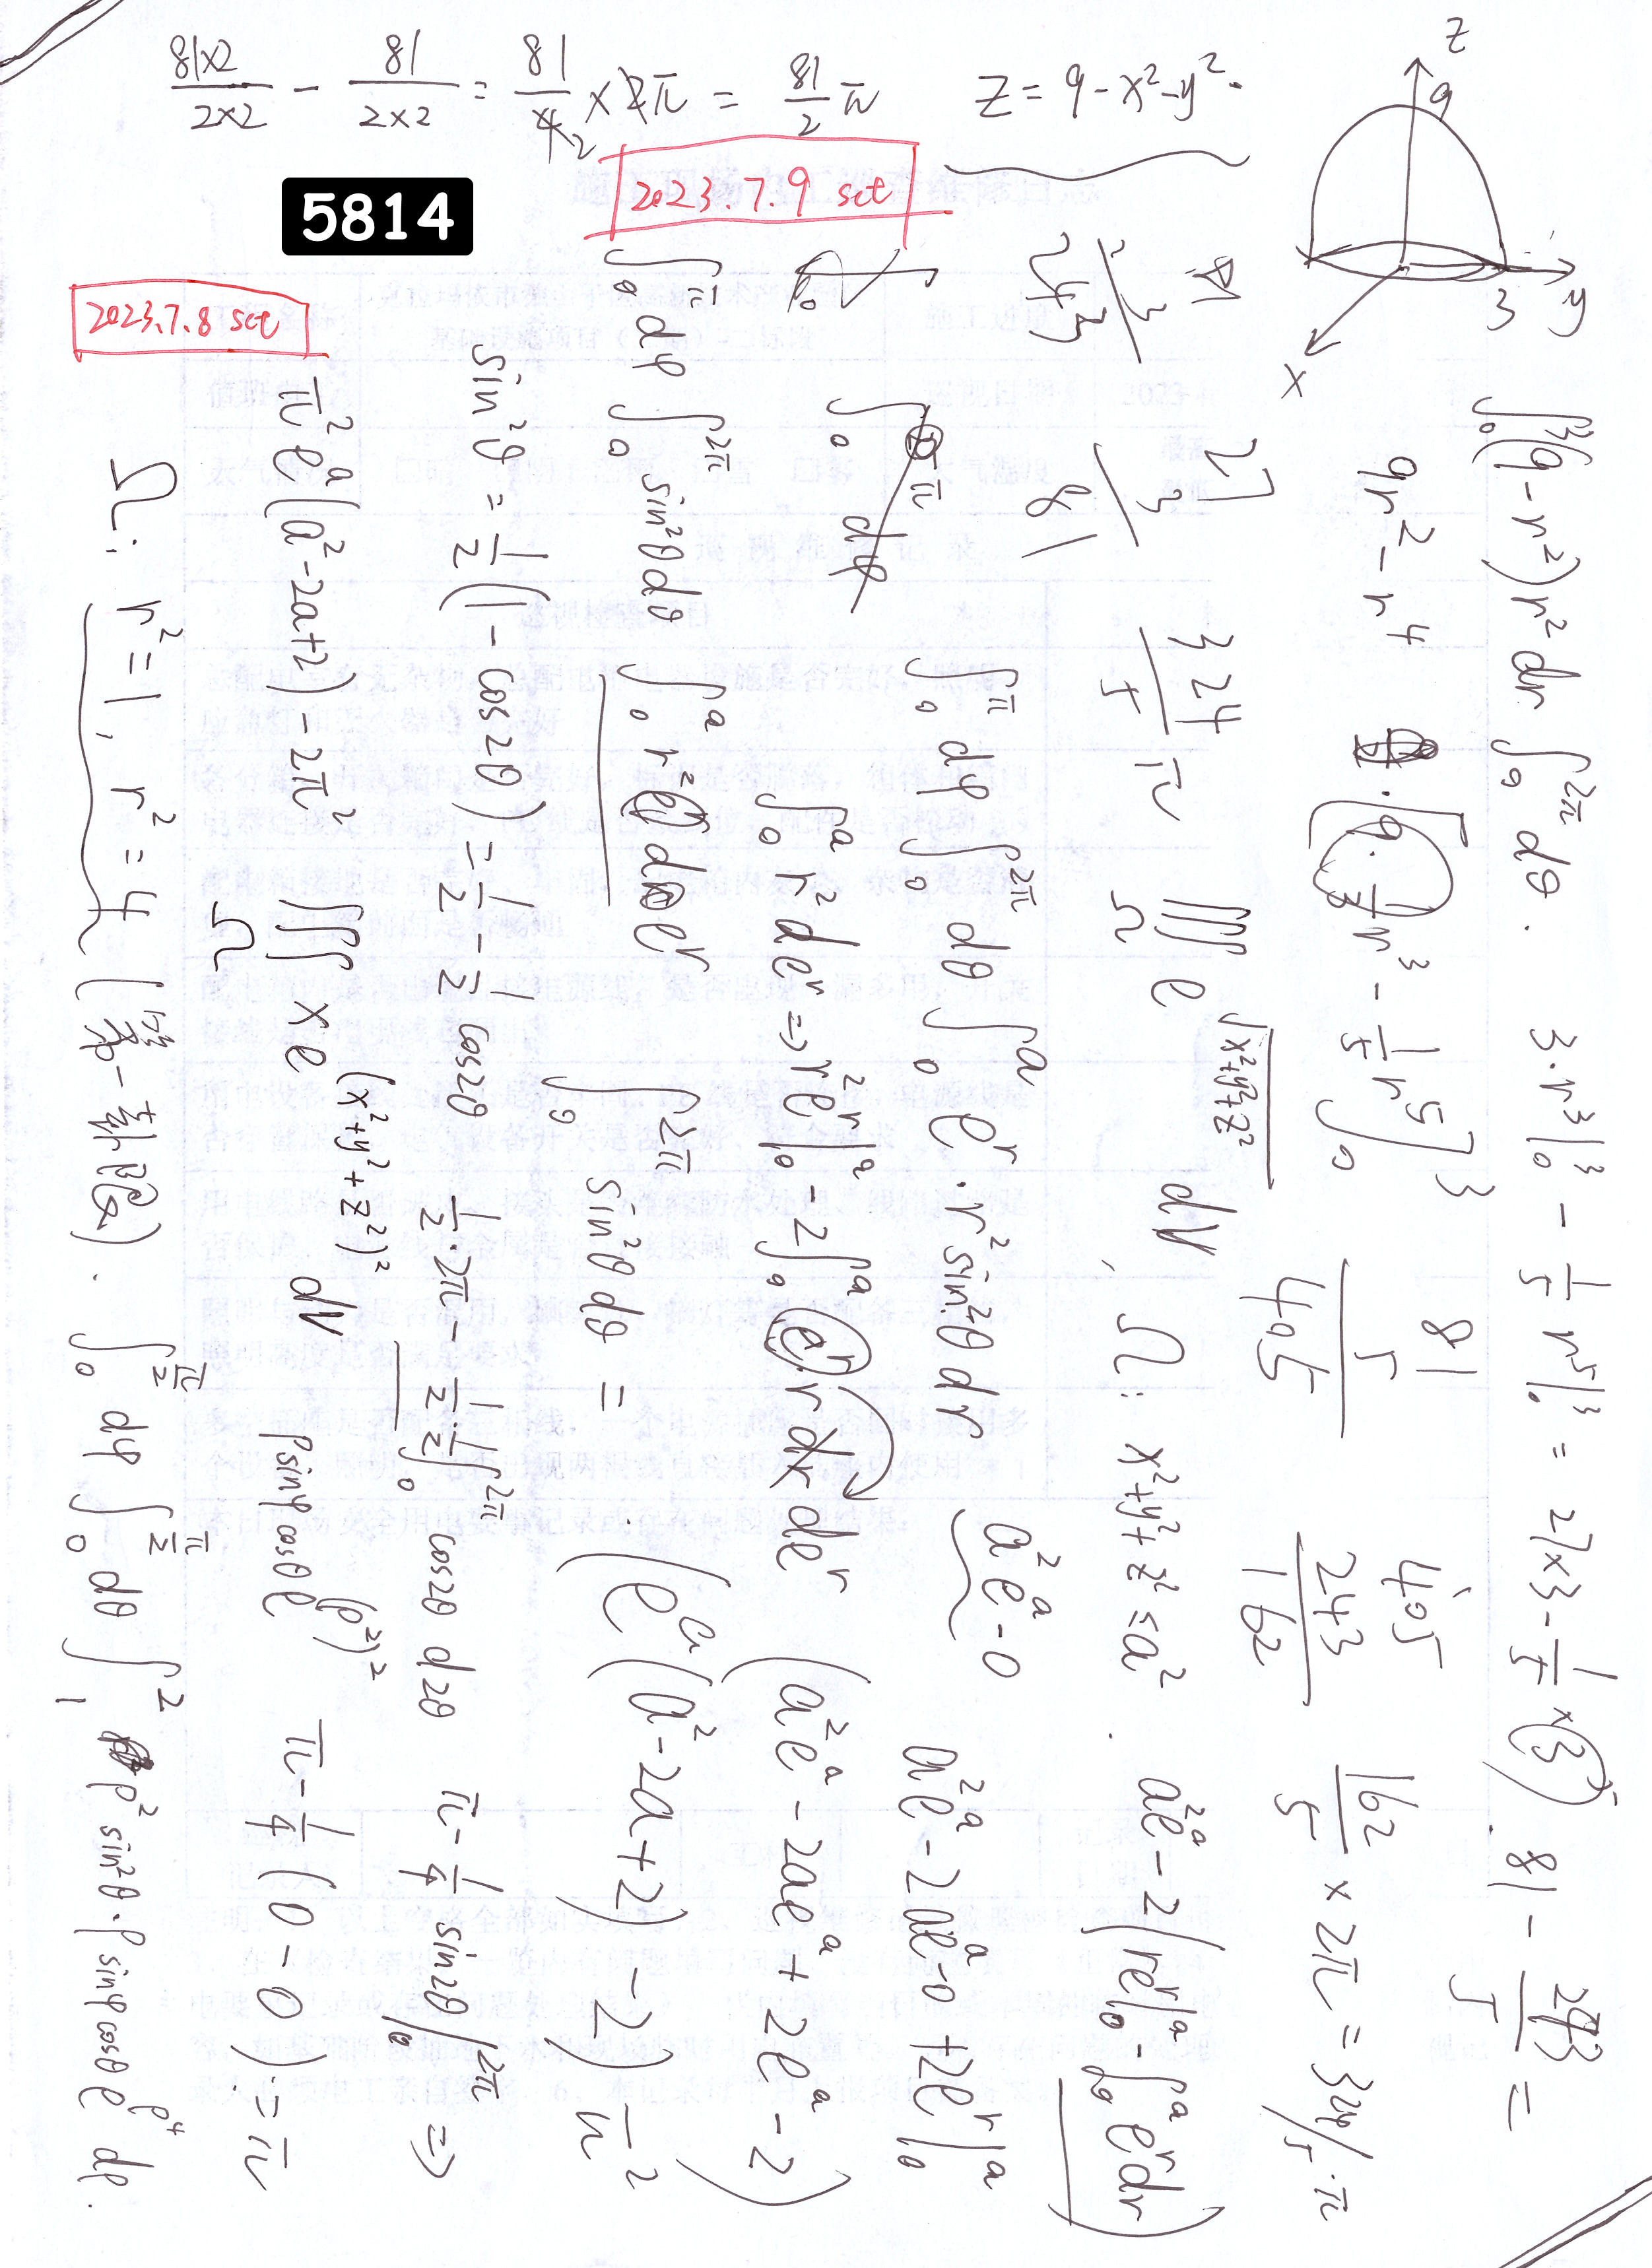 81×2/2×2 - 81/2×2 = 81/4 2 × 2π = 81/2 π
z = 9 - x² - y².
2023.7.9 sct
5814
2023.7.8 sct
z
9
3
y
x
∫₀³ (9 - r²) r² dr ∫₀^2π dθ. 3·r³|₀³ - 1/5 r⁵|₀³ = 27×3 - 1/5 ×(3)⁵. 81 - 243/5 =
9r² - r⁴ [9·1/3 r³ - 1/5 r⁵]₀³
81
5
405
405
243
162
162/5 × 2π = 324/5·π
27
3
81
3
243
324/5 π
∭Ω e^√x²+y²+z² dV, Ω: x²+y²+z² ≤ a². a²e^a - 2(re^r|₀^a - ∫₀^a e^r dr)
∫₀^π dφ ∫₀^2π dθ ∫₀^a e^r · r² sin²θ dr a²e^a - 0 a²e^a - 2ae^a - 0 + 2e^r|₀^a
∫₀^π dφ
∫₀^a r² de^r ⇒ r²e^r|₀^a - 2∫₀^a e^r·r dr de^r (a²e^a - 2ae^a + 2e^a - 2)
∫₀^π dφ ∫₀^2π sin²θ dθ ∫₀^a r² de^r ∫₀^2π sin²θ dθ = · (e^a(a² - 2a + 2) - 2) π²
sin²θ = 1/2 (1 - cos2θ) = 1/2 - 1/2 cos2θ 1/2·2π - 1/2·1/2 ∫₀^2π cos2θ d2θ π - 1/4 sin2θ|₀^2π ⇒
π²e^a(a² - 2a + 2) - 2π² ∭Ω xe^(x²+y²+z²)² dV ρsinφcosθe^(ρ²)² π - 1/4 (0 - 0) = π
Ω: r² = 1, r² = 4 ∫₀^π/2 dφ ∫₀^π/2 dθ ∫₁² ρ² sin²θ · ρsinφcosθ e^ρ⁴ dρ.